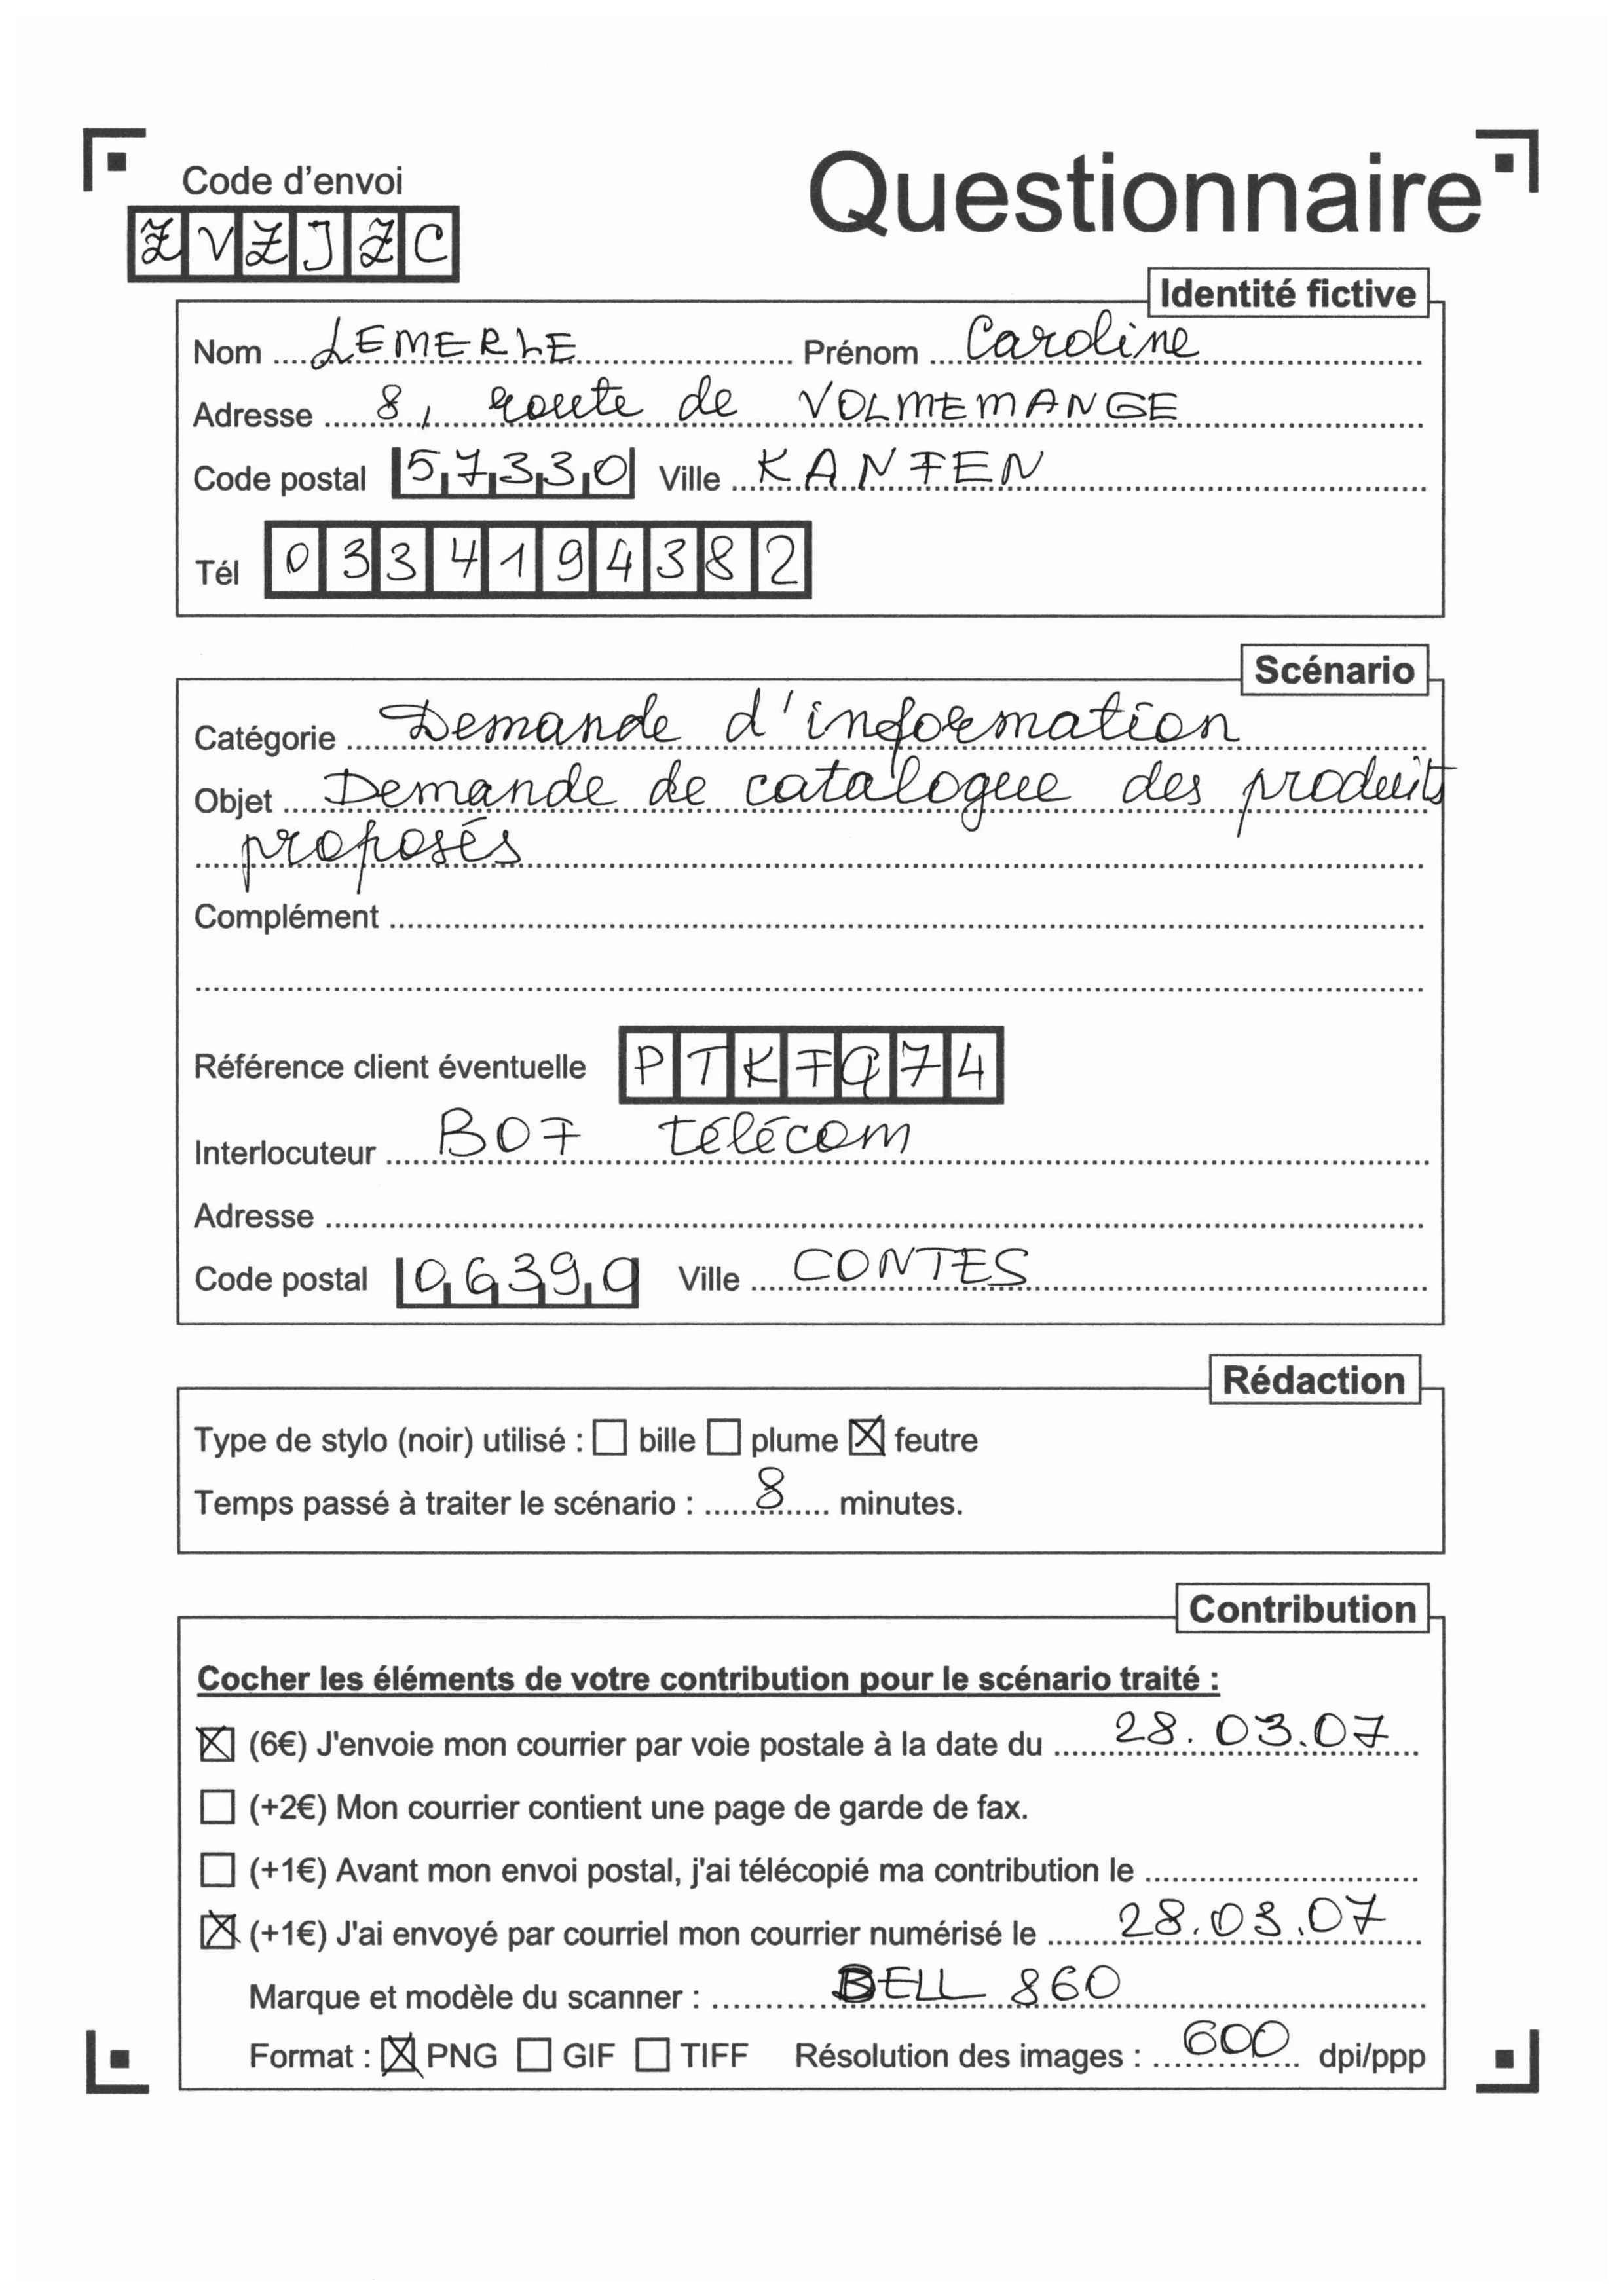 Code d'envoi
Questionnaire
ZVZJZC
Identité fictive
Nom LEMERLE Prénom Caroline
Adresse 8, route de VOLMEMANGE
Code postal 57330 Ville KANFEN
Tél 0334194382
Scénario
Catégorie Demande d'information
Objet Demande de catalogue des produits
proposés
Complément
Référence client éventuelle PTKFQ74
Interlocuteur BOF télécom
Adresse
Code postal 06390 Ville CONTES
Rédaction
Type de stylo (noir) utilisé : ☐ bille ☐ plume ☒ feutre
Temps passé à traiter le scénario : 8 minutes.
Contribution
Cocher les éléments de votre contribution pour le scénario traité :
☒ (6€) J'envoie mon courrier par voie postale à la date du 28.03.07
☐ (+2€) Mon courrier contient une page de garde de fax.
☐ (+1€) Avant mon envoi postal, j'ai télécopié ma contribution le
☒ (+1€) J'ai envoyé par courriel mon courrier numérisé le 28.03.07
Marque et modèle du scanner : BELL 860
Format : ☒ PNG ☐ GIF ☐ TIFF Résolution des images : 600 dpi/ppp